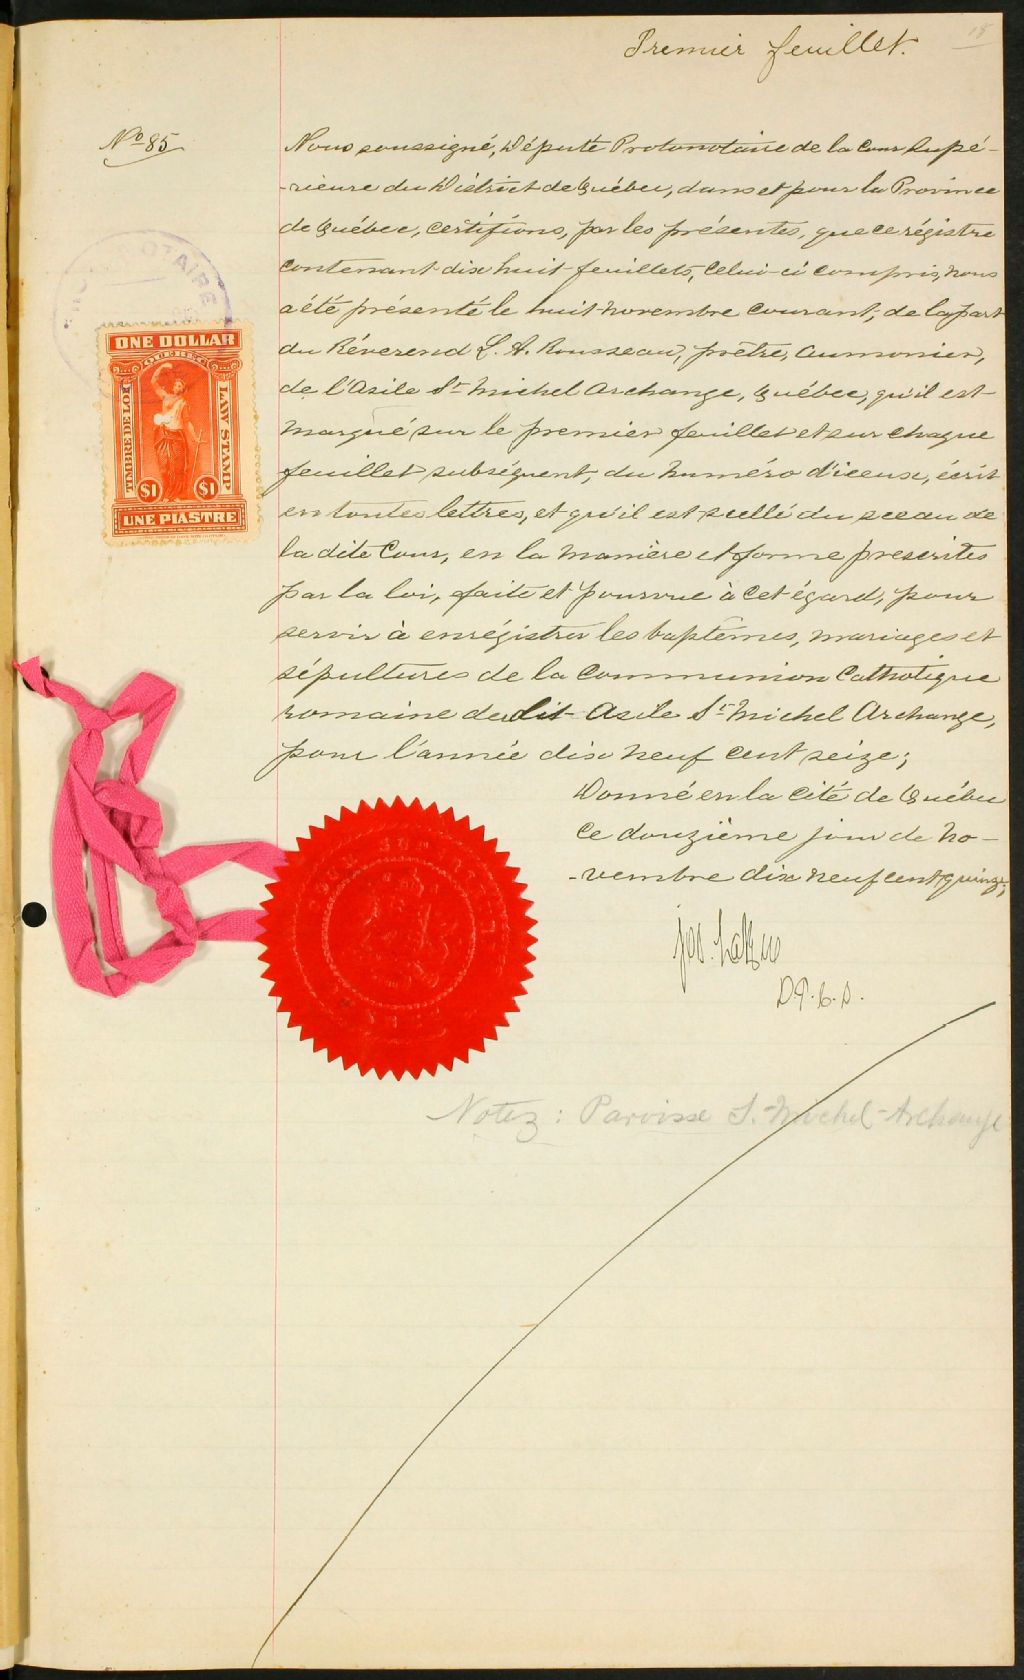 Premier feuillet.
18
No 85
Nous soussigné, Député Protonotaire de la Cour Supé-
-rieure du District de Québec, dans et pour la Province
de Québec, certifions, par les présentes, que ce régistre
contenant dix huit feuillets, celui-ci compris, nous
a été présenté le huit novembre courant, de la part
du Révérend L. A. Rousseau, prêtre, aumonier,
de l'Asile St Michel Archange, Québec, qu'il est
marqué sur le premier feuillet et sur chaque
feuillet subséquent, du numéro d'iceux, écrit
en toutes lettres, et qu'il est scellé du sceau de
la dite Cour, en la manière et forme prescrites
par la loi, faite et pourvue à cet égard, pour
servir à enrégistrer les baptêmes, mariages et
sépultures de la Communion Catholique
romaine du dit Asile St Michel Archange,
pour l'année dix neuf cent seize;
Donné en la cité de Québec
ce douzième jour de no-
-vembre dix neuf cent quinze;
D.P.C.S.
Notez : Paroisse S.-Michel-Archange
OTAIRE
ONE DOLLAR
QUEBEC
TIMBRE DE LOI
LAW STAMP
$1 $1
UNE PIASTRE